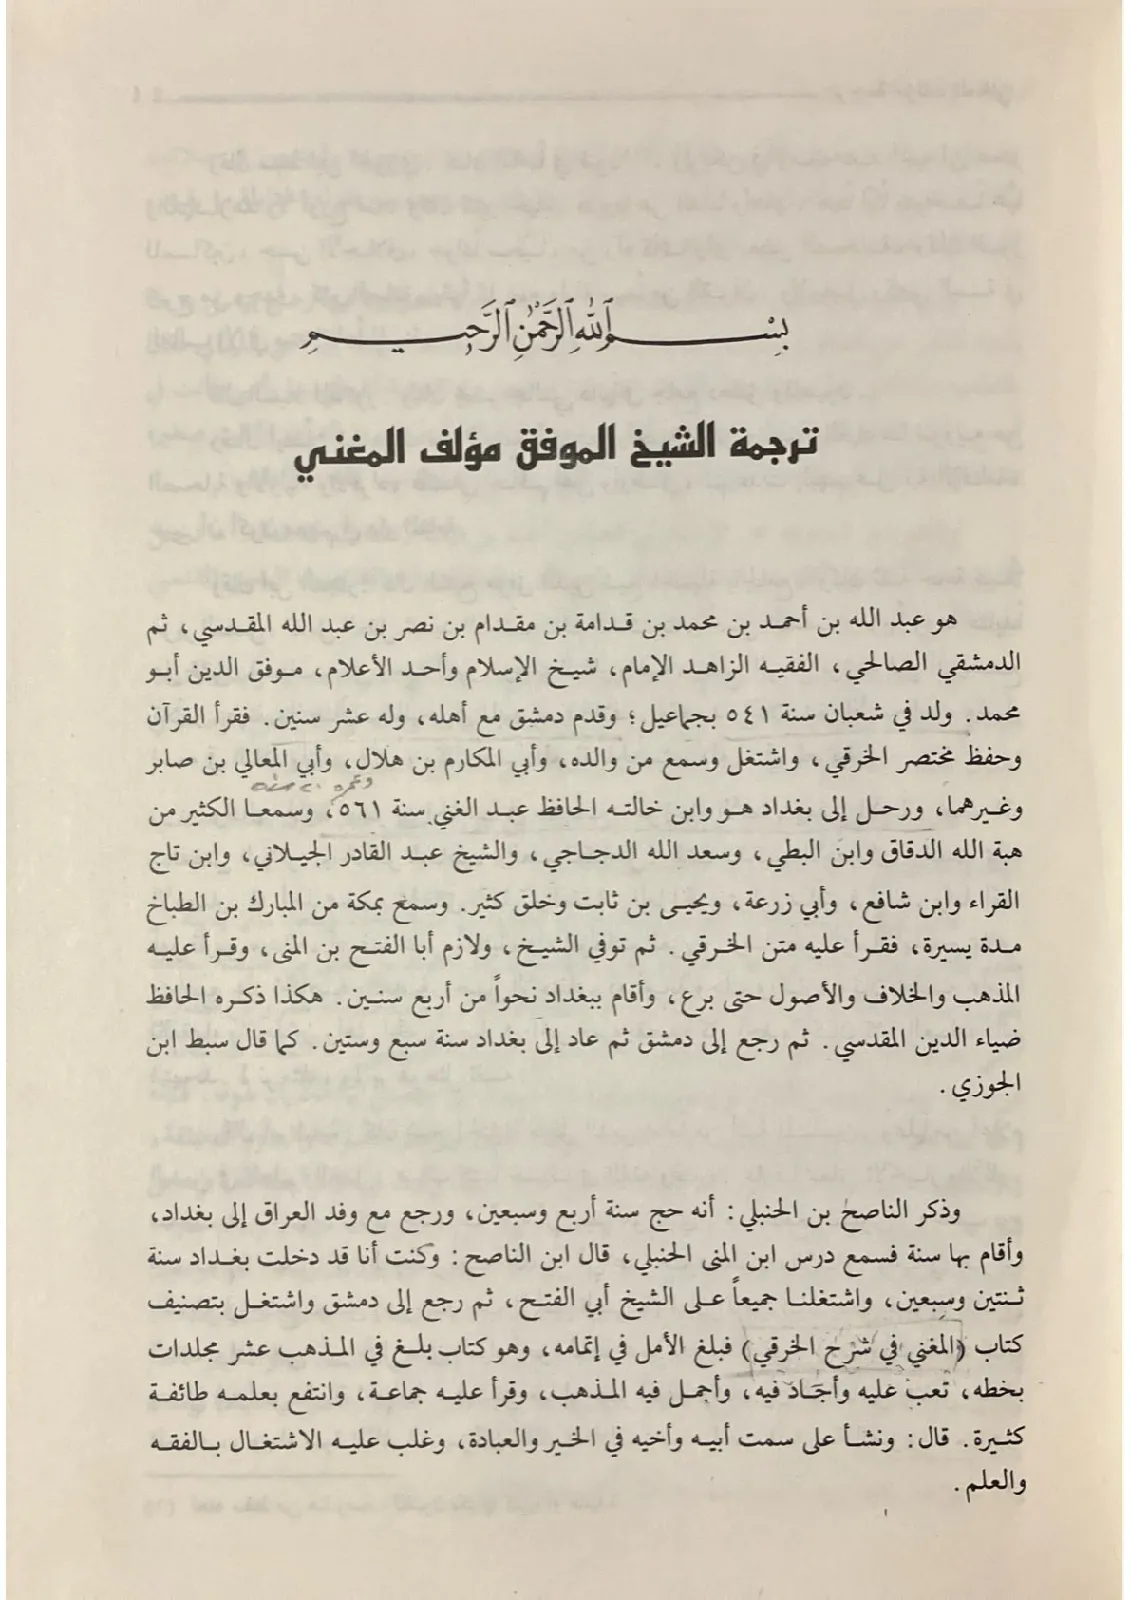 بسم الله الرحمن الرحيم
ترجمة الشيخ الموفق مؤلف المغني
هو عبد الله بن أحمد بن محمد بن قدامة بن مقدام بن نصر بن عبد الله المقدسي، ثم
الدمشقي الصالحي، الفقيه الزاهد الإمام، شيخ الإسلام وأحد الأعلام، موفق الدين أبو
محمد. ولد في شعبان سنة ٥٤١ بجماعيل؛ وقدم دمشق مع أهله، وله عشر سنين. فقرأ القرآن
وحفظ مختصر الخرقي، واشتغل وسمع من والده، وأبي المكارم بن هلال، وأبي المعالي بن صابر
وعمره ٢٠ سنة
وغيرهما، ورحل إلى بغداد هو وابن خالته الحافظ عبد الغني سنة ٥٦١، وسمعا الكثير من
هبة الله الدقاق وابن البطي، وسعد الله الدجاجي، والشيخ عبد القادر الجيلاني، وابن تاج
القراء وابن شافع، وأبي زرعة، ويحيى بن ثابت وخلق كثير. وسمع بمكة من المبارك بن الطباخ
مدة يسيرة، فقرأ عليه متن الخرقي. ثم توفي الشيخ، ولازم أبا الفتح بن المنى، وقرأ عليه
المذهب والخلاف والأصول حتى برع، وأقام ببغداد نحواً من أربع سنين. هكذا ذكره الحافظ
ضياء الدين المقدسي. ثم رجع إلى دمشق ثم عاد إلى بغداد سنة سبع وستين. كما قال سبط ابن
الجوزي.
وذكر الناصح بن الحنبلي: أنه حج سنة أربع وسبعين، ورجع مع وفد العراق إلى بغداد،
وأقام بها سنة فسمع درس ابن المنى الحنبلي، قال ابن الناصح: وكنت أنا قد دخلت بغداد سنة
ثنتين وسبعين، واشتغلنا جميعاً على الشيخ أبي الفتح، ثم رجع إلى دمشق واشتغل بتصنيف
كتاب (المغني في شرح الخرقي) فبلغ الأمل في إتمامه، وهو كتاب بلغ في المذهب عشر مجلدات
بخطه، تعب عليه وأجاد فيه، وأجمل فيه المذهب، وقرأ عليه جماعة، وانتفع بعلمه طائفة
كثيرة. قال: ونشأ على سمت أبيه وأخيه في الخير والعبادة، وغلب عليه الاشتغال بالفقه
والعلم.